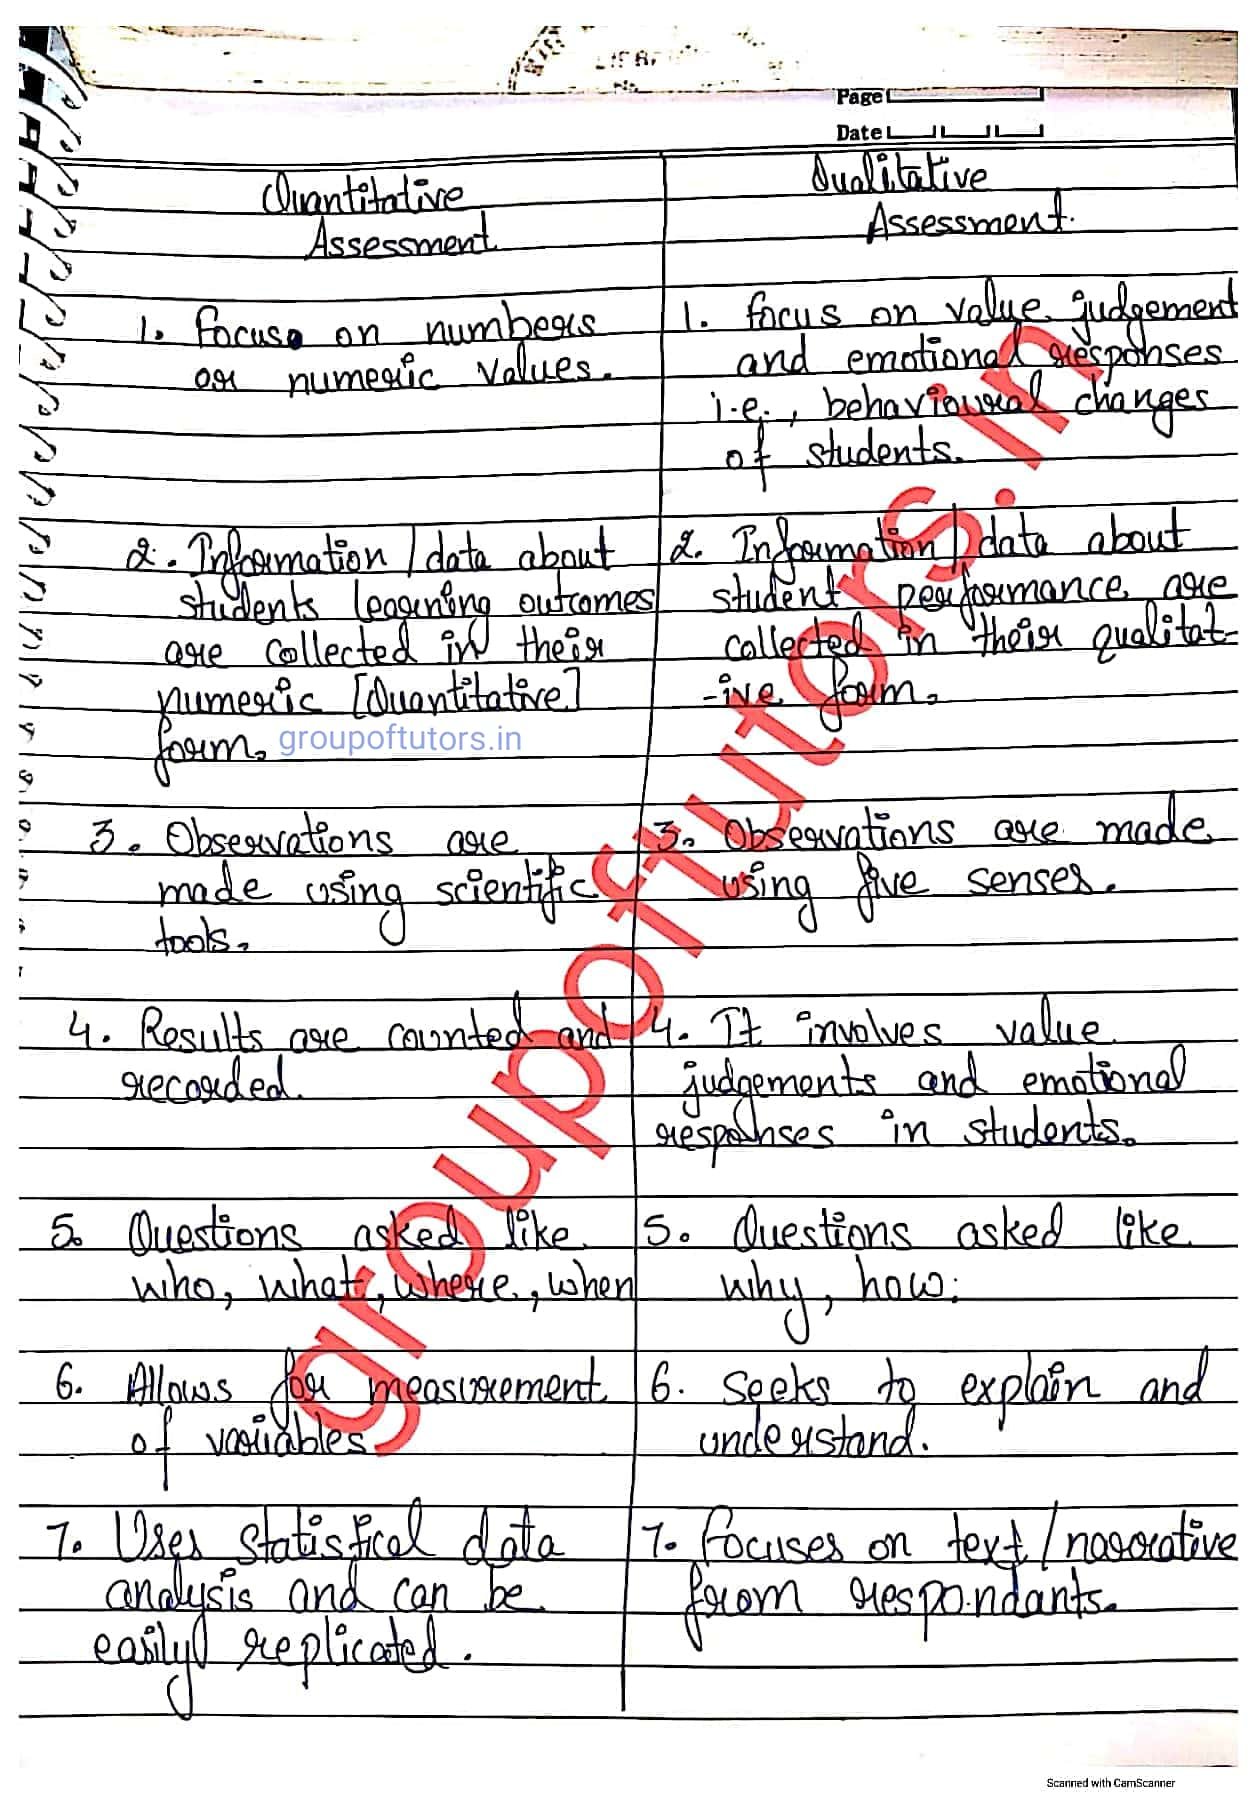 LIBRA
No.
Page
Date
Quantitative
Assessment
Qualitative
Assessment.
1. Focus on numbers
or numeric values.
1. Focus on value judgement
and emotional responses
i.e., behavioural changes
of students.
2. Information/data about
students learning outcomes
are collected in their
numeric [Quantitative]
form.
groupoftutors.in
2. Information/data about
student performance are
collected in their qualitat-
-ive form.
3. Observations are
made using scientific
tools.
3. Observations are made
using five senses.
4. Results are counted and
recorded.
4. It involves value
judgements and emotional
responses in students.
5. Questions asked like
who, what, where, when
5. Questions asked like
why, how.
6. Allows for measurement
of variables
6. Seeks to explain and
understand.
7. Uses statistical data
analysis and can be
easily replicated.
7. Focuses on text/narrative
from respondants.
groupoftutors.in
Scanned with CamScanner